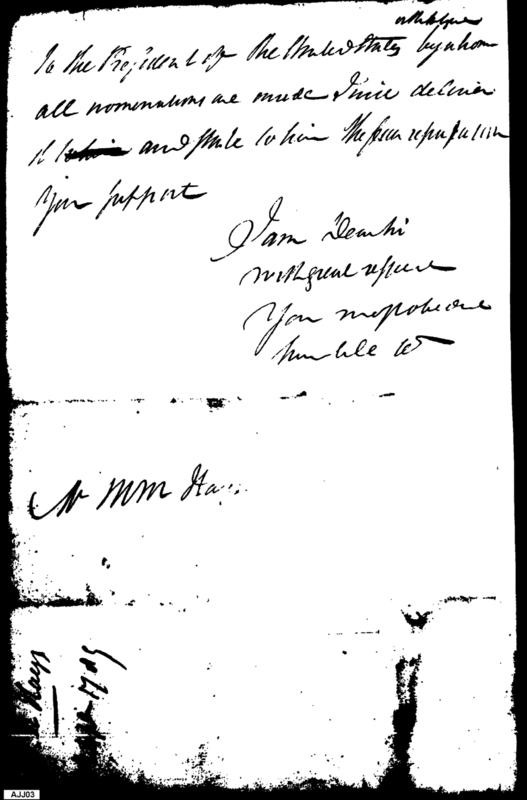 To the President of the United States by whom
all nominations are made I will deliver
it and state to him the
Your support
I am Dear Sir
with great respect
Your most obedient
humble
Mr MM Hays
Hays
1789
AJJ03